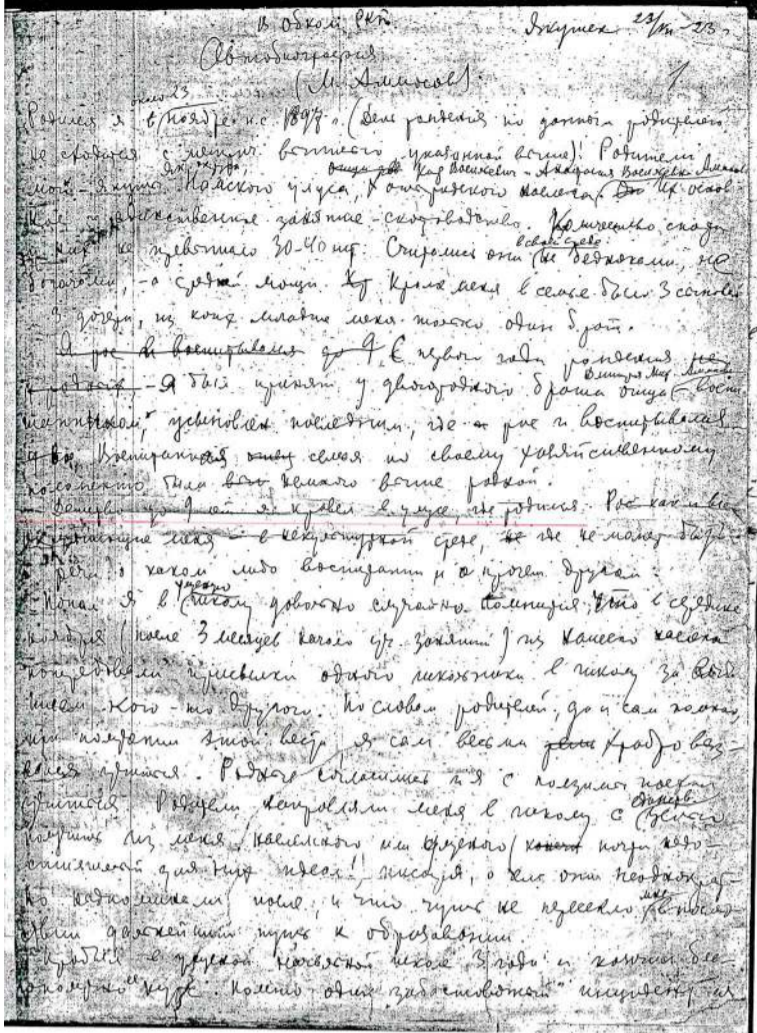 В Обком РКП
Якутск 23/XII-23 г.
Автобиография
(М. Аммосов).
1.
около 23
Родился я в ноябре н.с. 1897 г. (День рождения по данным родителей
не сходится с метрич. вышеуказанной)! Родители
мои - якуты Намского улуса, Их основ-
ное и единственное занятие - скотоводство. Количество скота
у них не превышало 30-40 шт. Считались они в своей среде не бедняками, не
богачами, - а средней мощи. Кроме меня в семье было 3 сыновей
3 дочери, из коих младше меня только один брат.
Я рос и воспитывался до 9, С первого года рождения не
- Я был принят у двоюродного брата отца Аммосова воспи-
танником, усыновлен последним, где рос и воспитывался.
семья по своему хозяйственному
положению была немного выше родной.
- Детство до 9 лет я провел в улусе, где родился. Рос как и все
окружающие меня - в некультурной среде, где не может быть
речи о каком либо воспитании и о прочем другом.
- Попал я в школу довольно случайно. Помнится, что в середине
ноября (после 3 месяцев начала уч. занятий) из нашего наслега
потребовали присылки одного школьника в школу за
кого-то другого. По словам родителей, да и сам помню,
при получении этой вести я сам весьма храбро выз-
вался учиться. Родные согласились и я с поехал
учиться. Родители направляли меня в школу с целью
получить из меня наслежного или улусного (почти недо-
сягаемый для них идеал!) писаря, о чем они неоднократ-
но напоминали после, и что чуть не пресекло мне впослед-
ствии дальнейший путь к образованию
Пробыл в улусной школе 3 года и кончил
курс. Помню один "забастовочный" инцидент